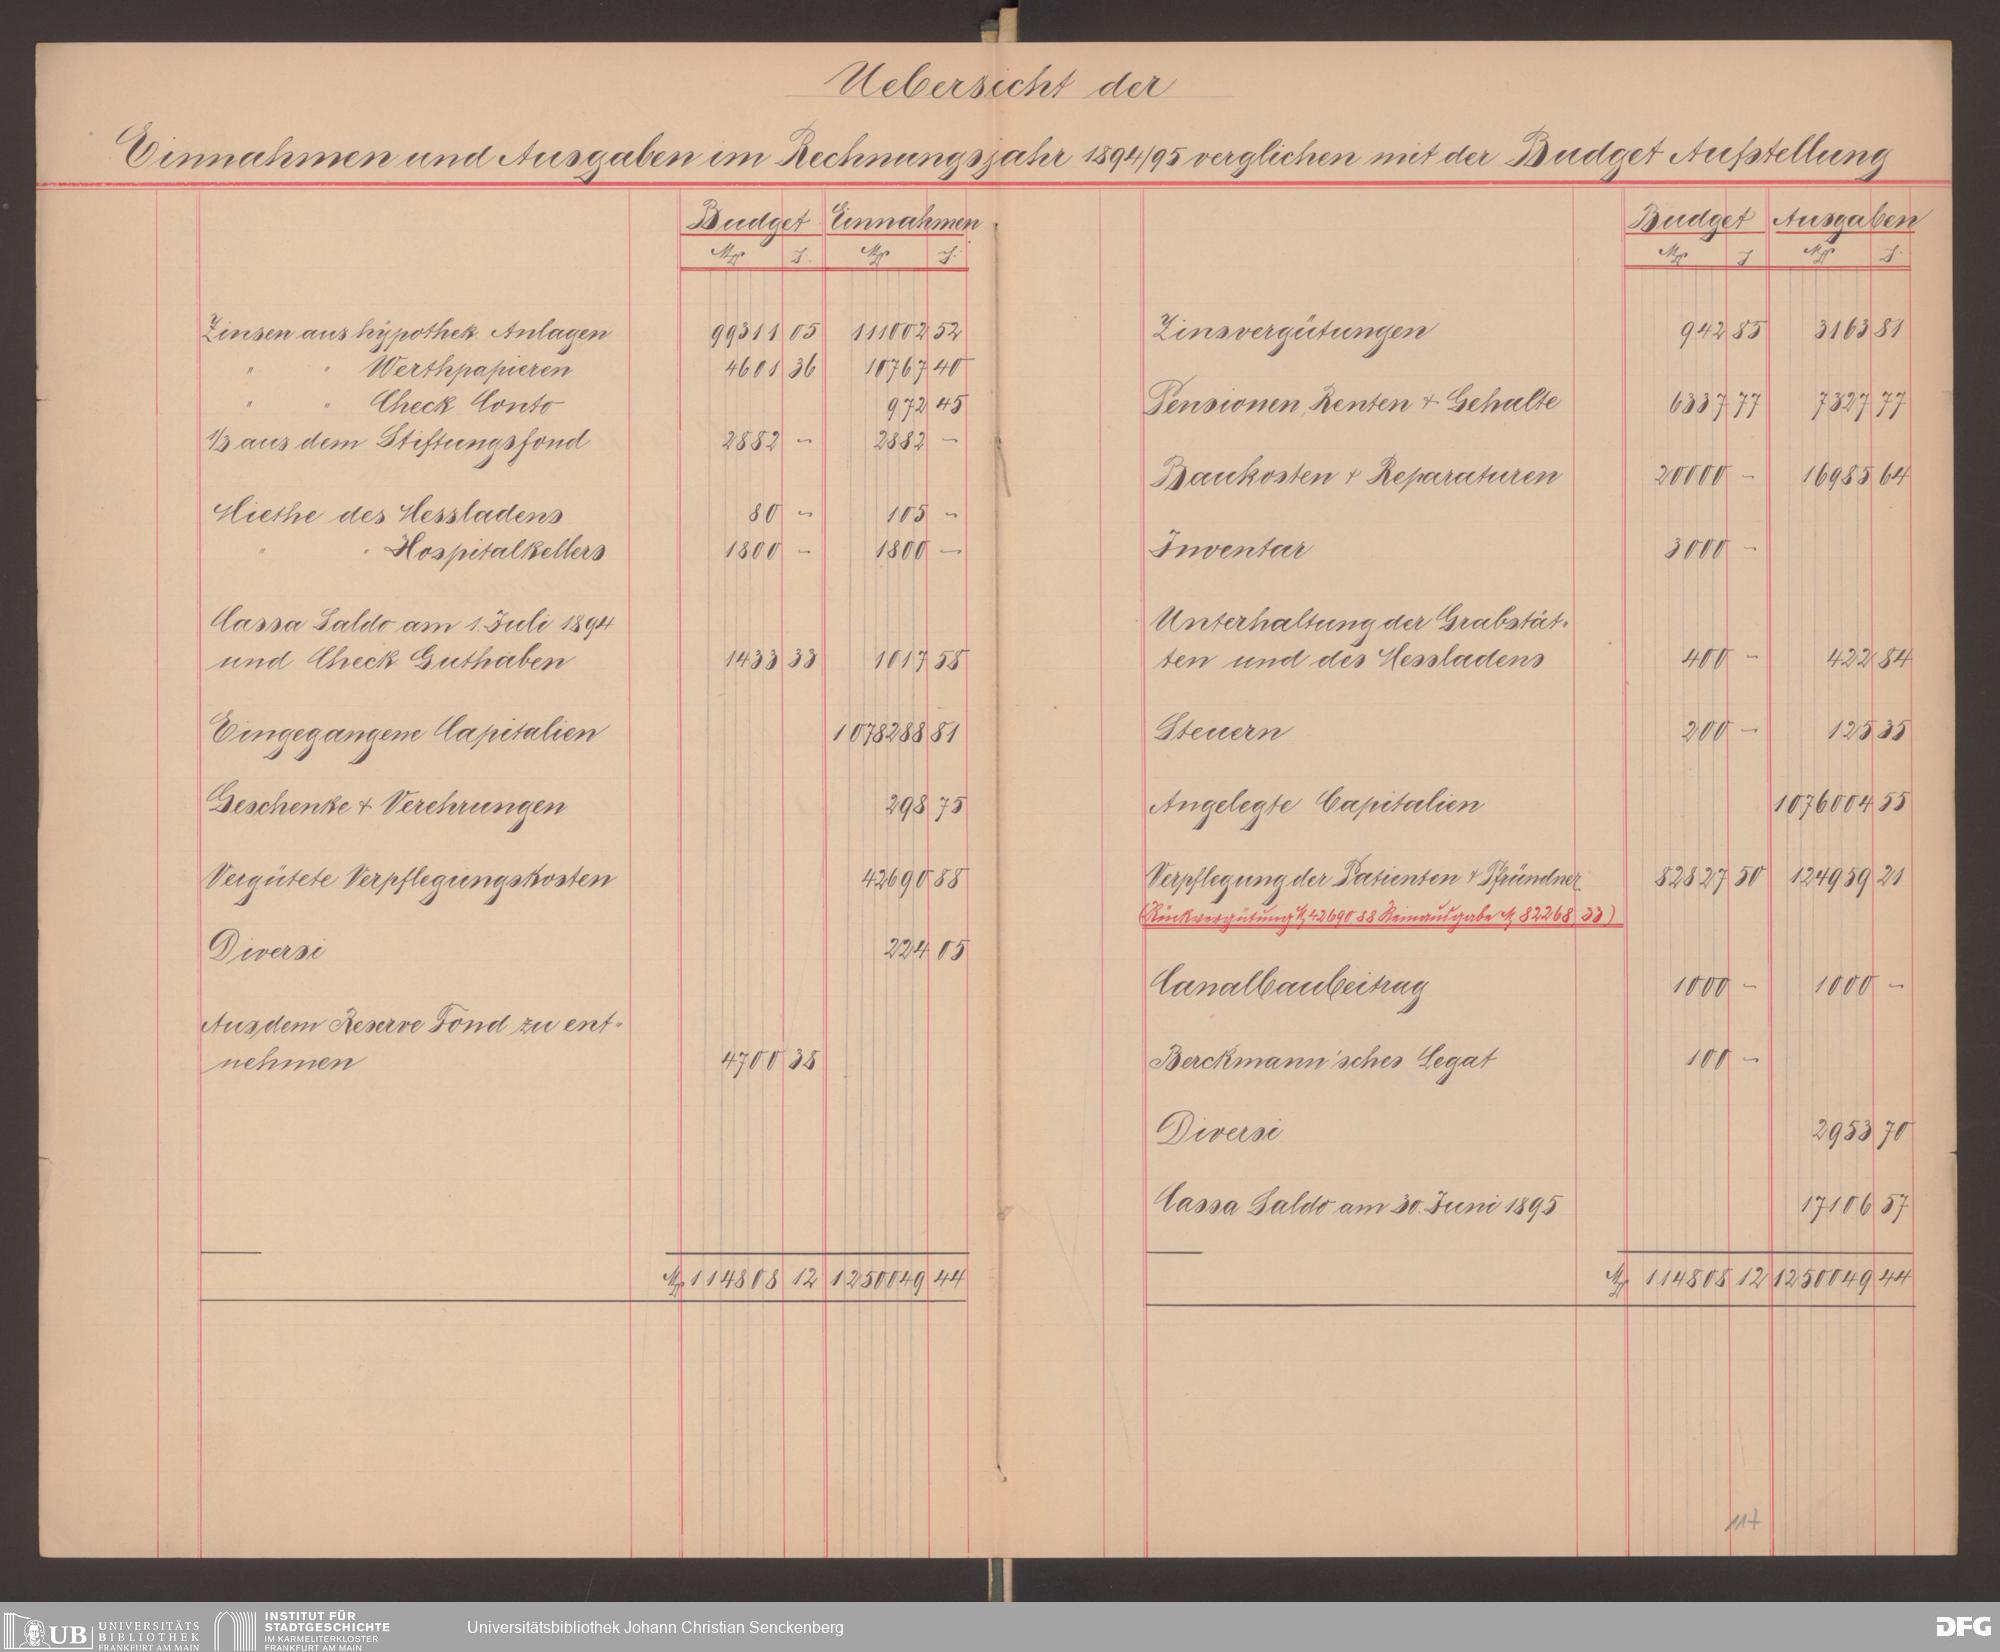 Uebersicht der
Einnahmen und Ausgaben im Rechnungsjahr 1894/95 verglichen mit der Budget Aufstellung
Budget Einnahmen
M ₰ M ₰
Zinsen aus hypothek. Anlagen 99311 05 111002 52
" " Werthpapieren 4601 36 10767 40
" " Check Conto 972 45
1/3 aus dem Stiftungsfond 2882 – 2882 –
Miethe des Messladens 80 – 105 –
" " Hospitalkellers 1800 – 1800 –
Cassa Saldo am 1. Juli 1894
und Check Guthaben 1433 33 1017 58
Eingegangene Capitalien 1078288 81
Geschenke & Verehrungen 298 75
Vergütete Verpflegungskosten 42690 88
Diversi 224 05
Aus dem Reserve Fond zu ent-
nehmen 4700 38
M 114808 12 1250049 44
Budget Ausgaben
M ₰ M ₰
Zinsvergütungen 942 85 3163 81
Pensionen, Renten & Gehalte 6337 77 7327 77
Baukosten & Reparaturen 20000 – 16985 64
Inventar 3000 –
Unterhaltung der Grabstät-
ten und des Messladens 400 – 422 84
Steuern 200 – 125 35
Angelegte Capitalien 1076004 55
Verpflegung der Patienten & Pfründner 82827 50 124959 21
(Rückvergütung M 42690 88 Reinausgabe M 82268,33)
Canalbaubeitrag 1000 – 1000 –
Berckmann'sches Legat 100 –
Diversi 2953 70
Cassa Saldo am 30. Juni 1895 17106 57
M 114808 12 1250049 44
117
UB UNIVERSITÄTS
BIBLIOTHEK
FRANKFURT AM MAIN
INSTITUT FÜR
STADTGESCHICHTE
IM KARMELITERKLOSTER
FRANKFURT AM MAIN
Universitätsbibliothek Johann Christian Senckenberg
DFG